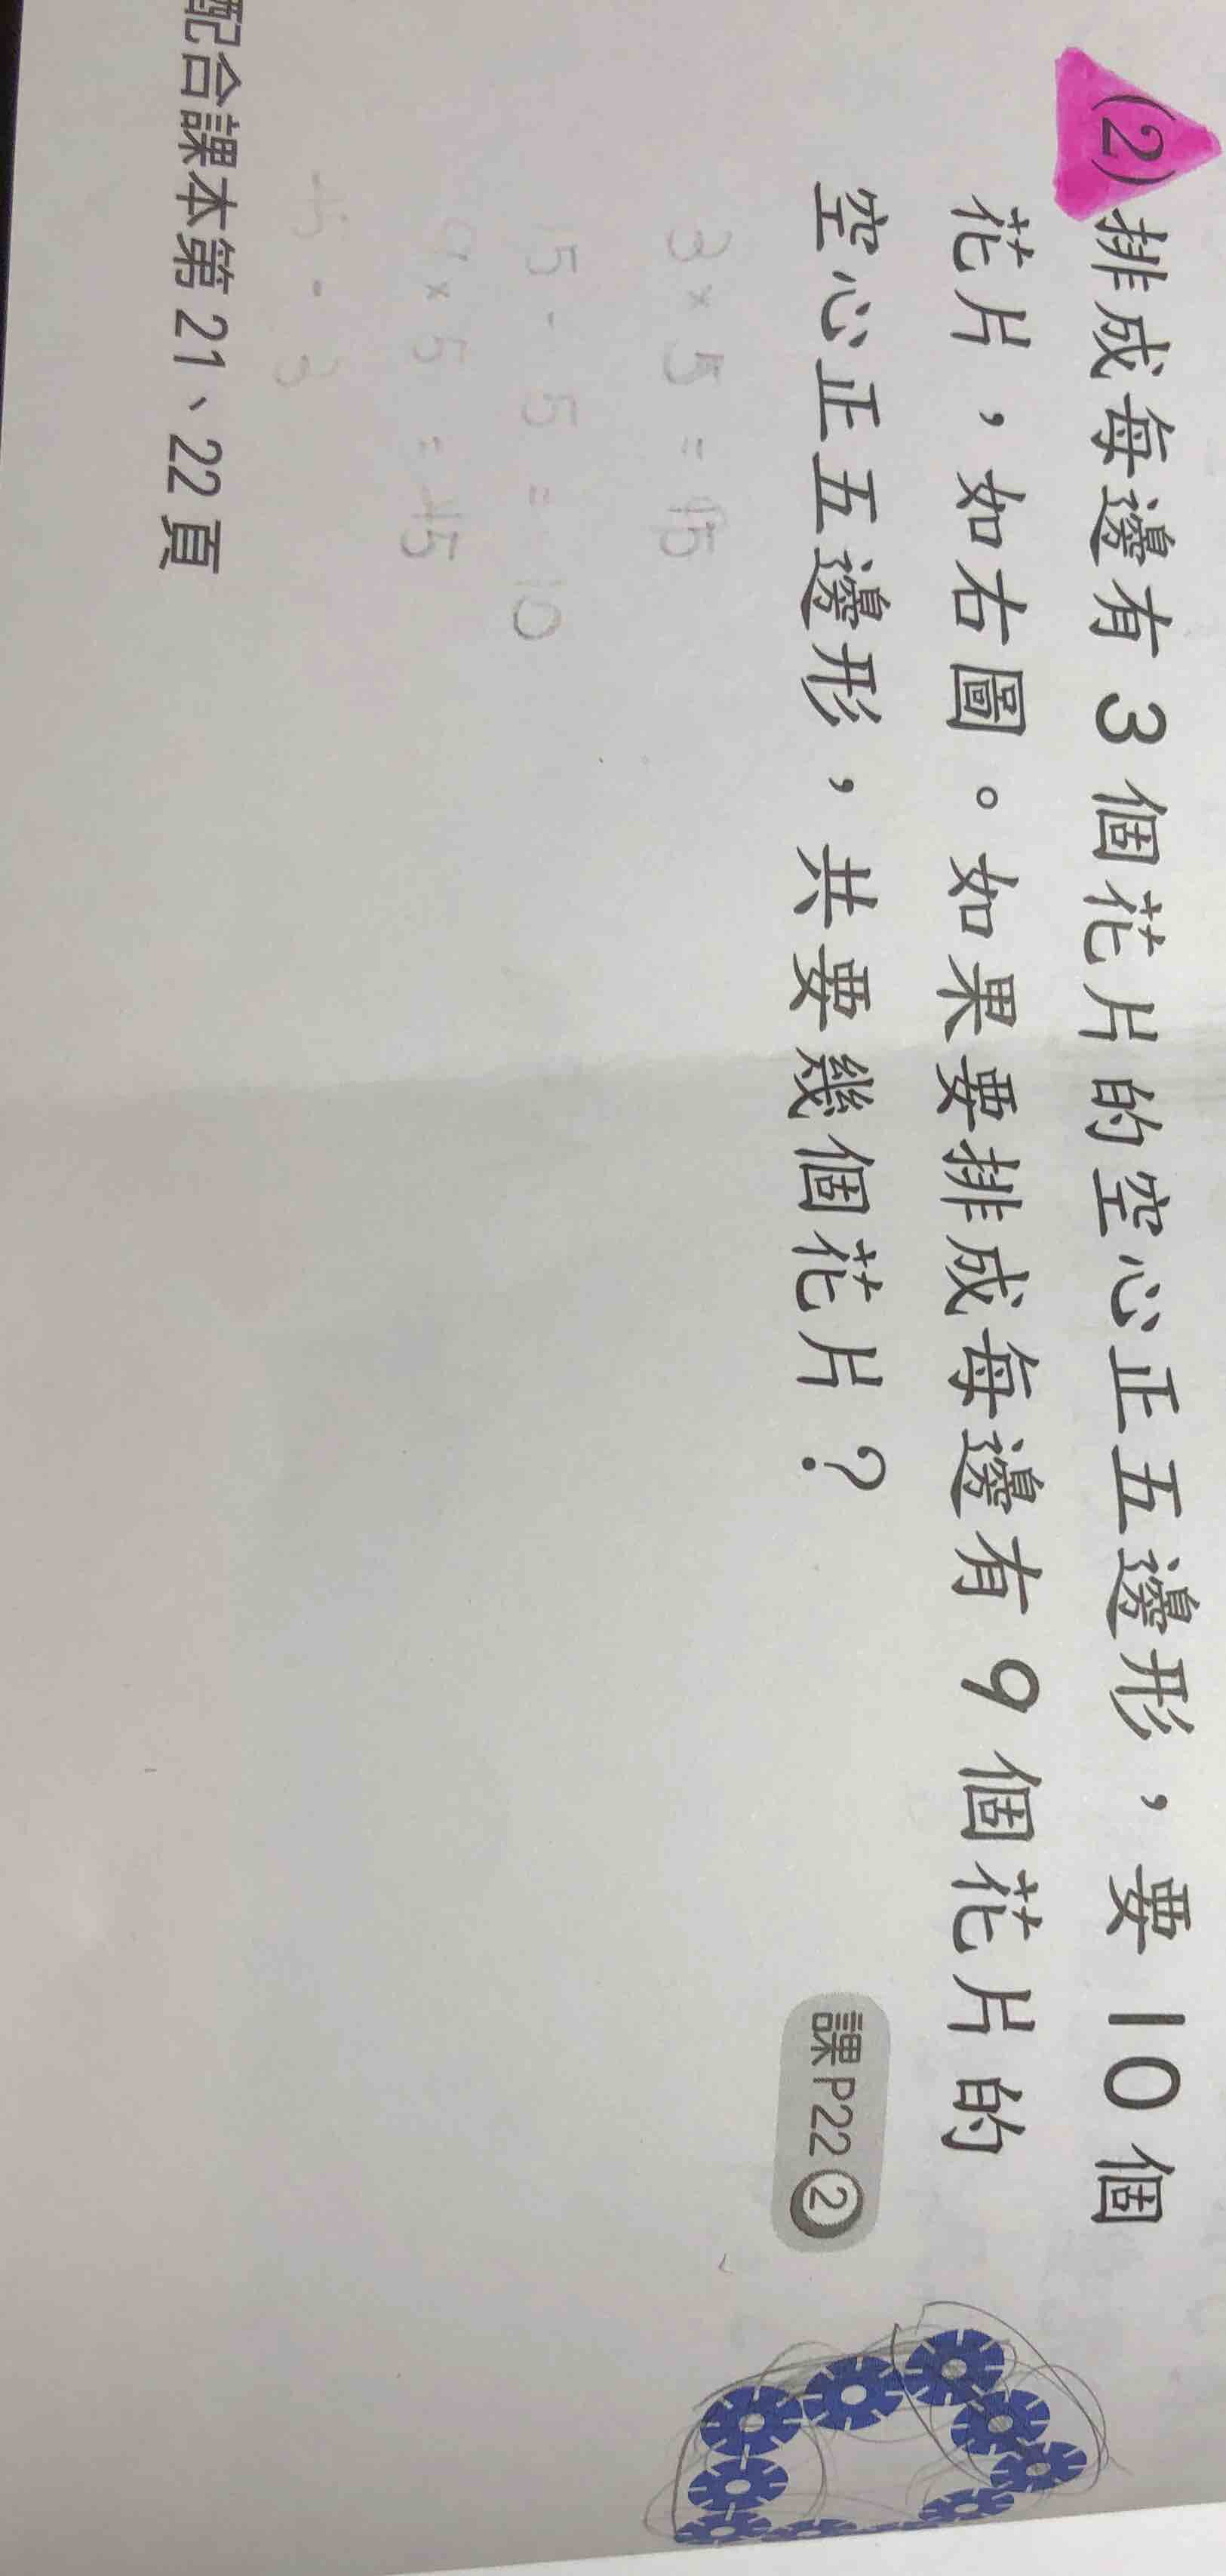 (2) 排成每邊有 3 個花片的空心正五邊形，要 10 個
花片，如右圖。如果要排成每邊有 9 個花片的
空心正五邊形，共要幾個花片？
課P22②
3 × 5 = 15
15 - 5 = 10
9 × 5 = 45
45 - 3
配合課本第 21、22 頁